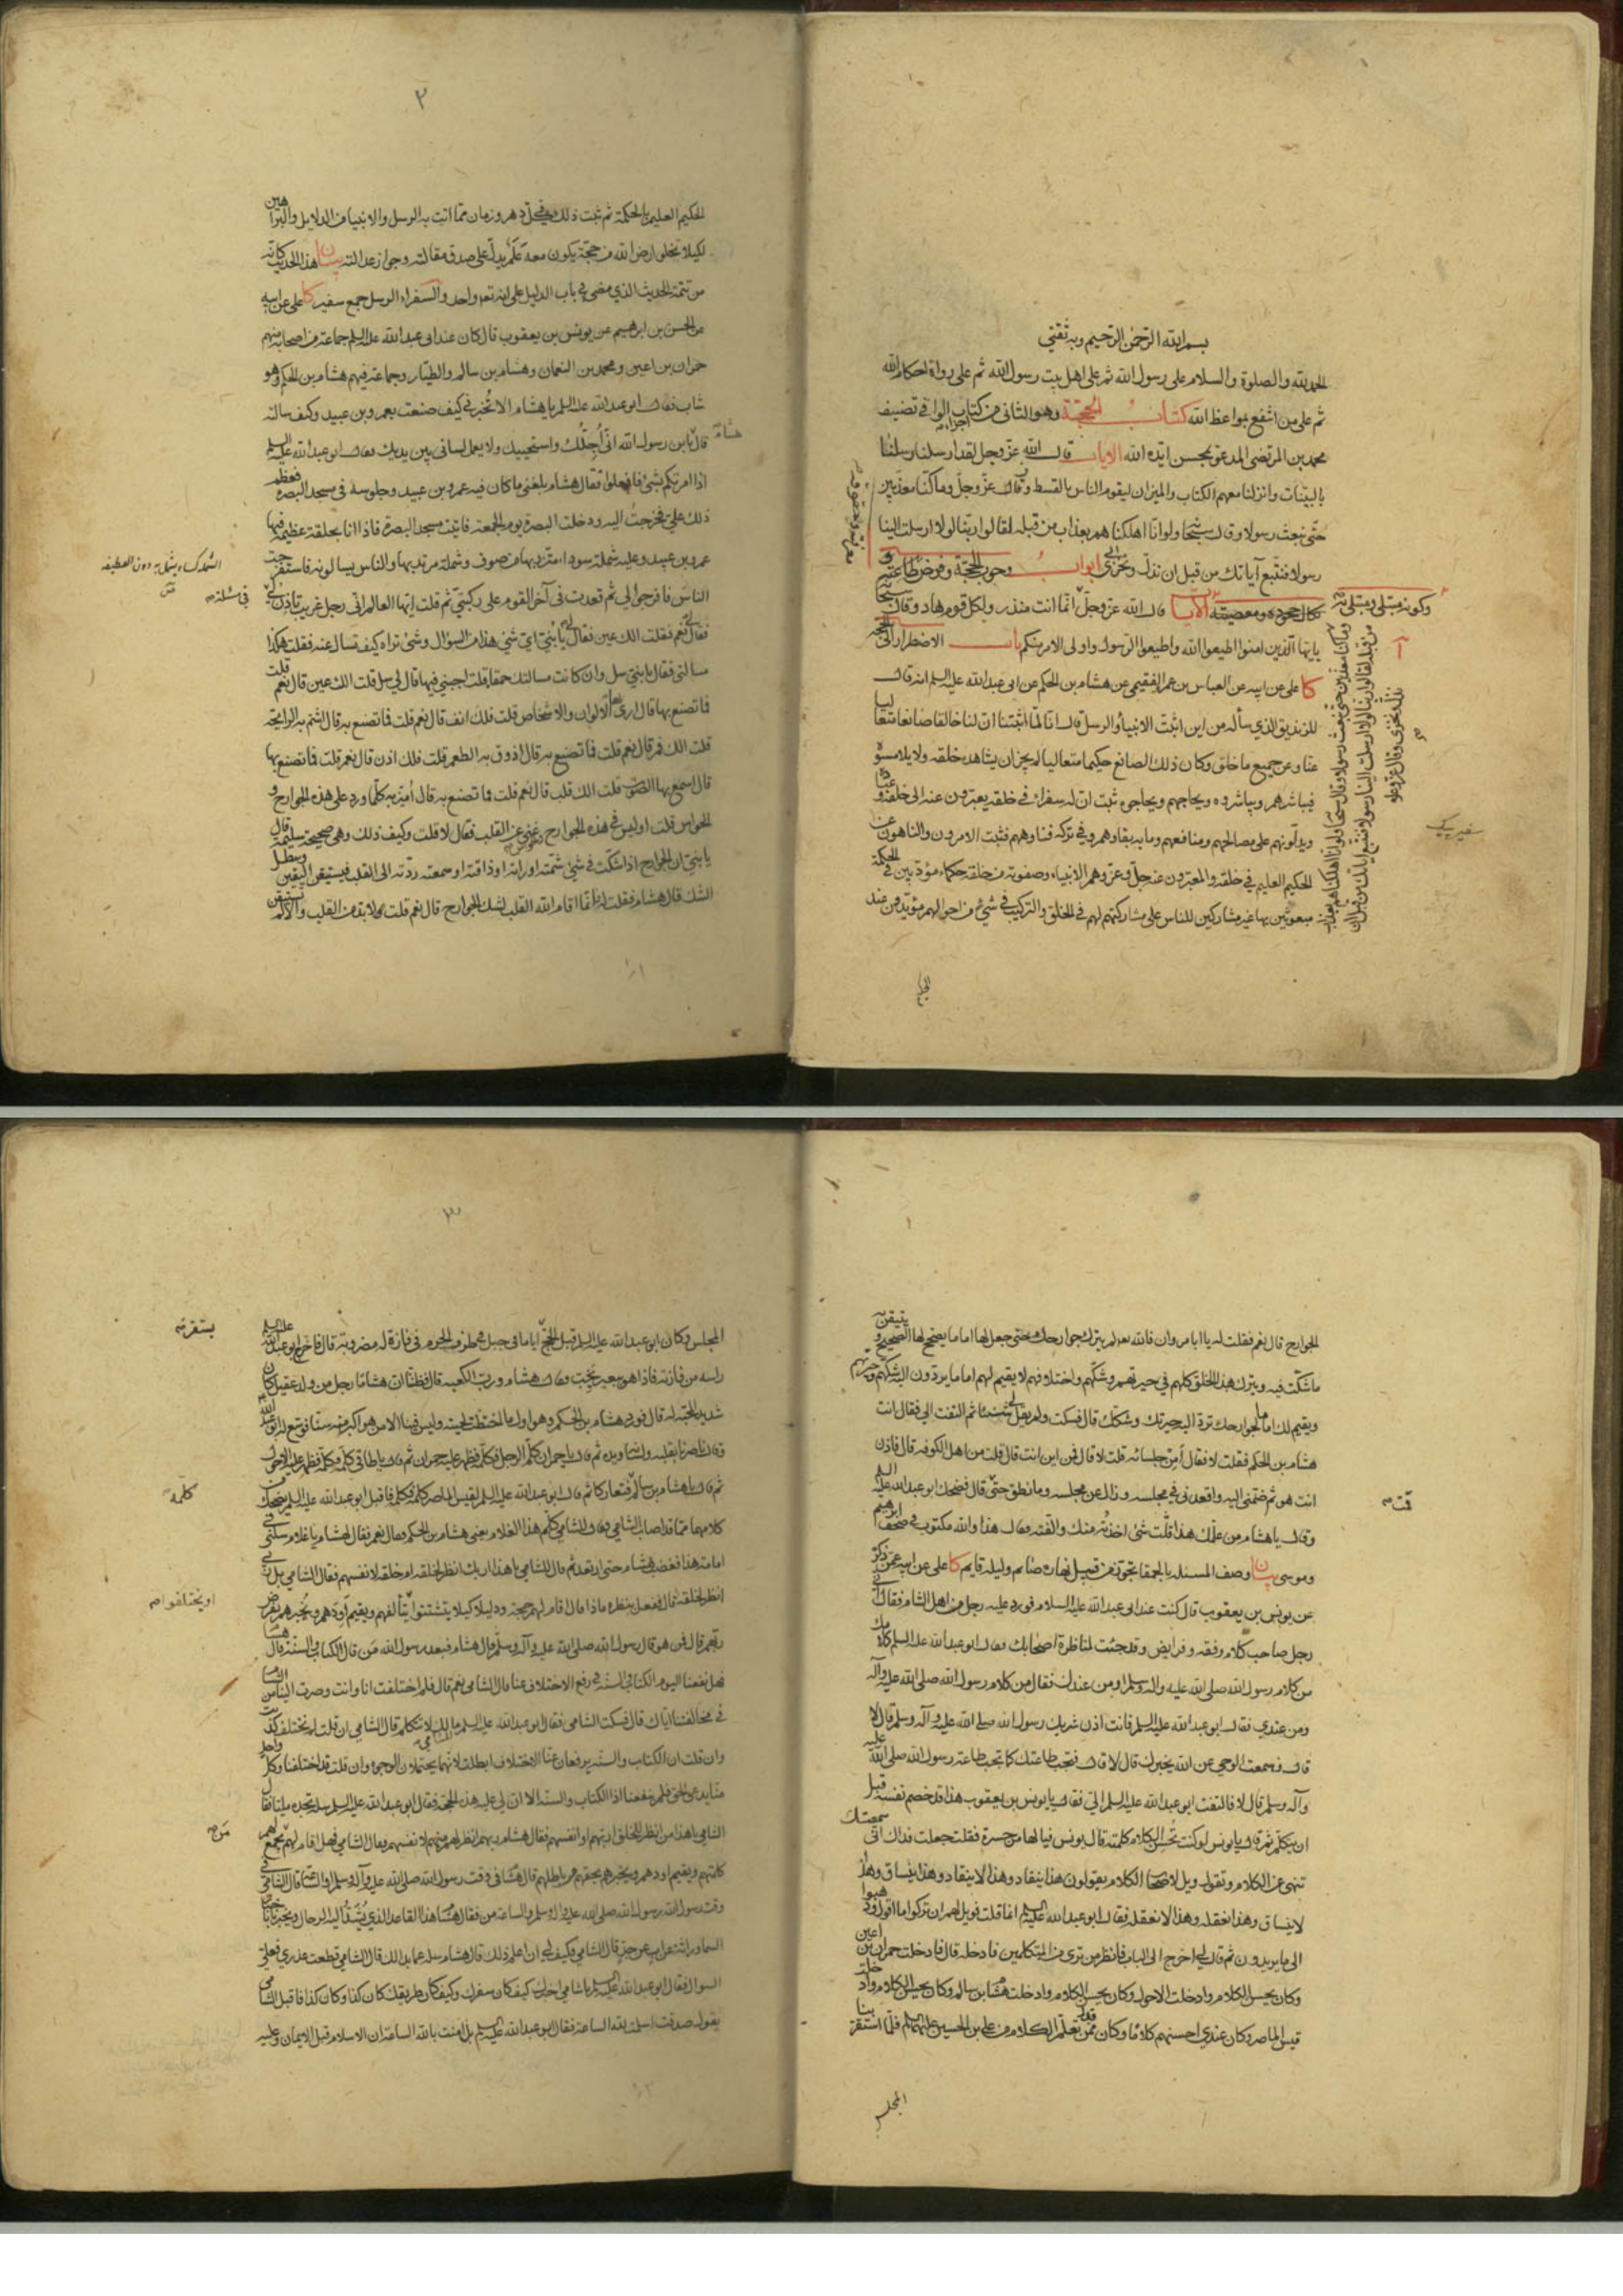 بسم الله الرحمن الرحیم وبه ثقتی
الحمد لله والصلوة والسلام علی رسول الله ثم علی اهل بیت رسول الله ثم علی رواة احکام الله
ثم علی من انتفع بمواعظ الله کتاب الحجة وهو الثانی من اجزاء کتاب الوافی تصنیف
محمد بن المرتضی المدعو بمحسن ایده الله الایات قال الله عز وجل لقد ارسلنا رسلنا
بالبینات وانزلنا معهم الکتاب والمیزان لیقوم الناس بالقسط وقال عز وجل وما کنا معذبین
حتی نبعث رسولا وقال سبحانه ولو انا اهلکناهم بعذاب من قبله لقالوا ربنا لولا ارسلت الینا
رسولا فنتبع آیاتک من قبل ان نذل ونخزی ابواب وجوب الحجة وفرض طاعته
الآیات قال الله عز وجل انما انت منذر ولکل قوم هاد وقال سبحانه
یا ایها الذین امنوا اطیعوا الله واطیعوا الرسول واولی الامر منکم باب الاضطرار الی الحجة
کا علی عن ابیه عن العباس بن عمر الفقیمی عن هشام بن الحکم عن ابی عبد الله علیه السلم انه قال
للزندیق الذی سأله من این اثبت الانبیاء والرسل قال انا لما اثبتنا ان لنا خالقا صانعا متعالیا
عنا وعن جمیع ما خلق وکان ذلک الصانع حکیما متعالیا لم یجز ان یشاهده خلقه ولا یلامسوه
فیباشرهم ویباشروه ویحاجهم ویحاجوه ثبت ان له سفراء فی خلقه یعبرون عنه الی خلقه وعباده
ویدلونهم علی مصالحهم ومنافعهم وما به بقاؤهم وفی ترکه فناؤهم فثبت الامرون والناهون عن
الحکیم العلیم فی خلقه والمعبرون عنه جل وعز وهم الانبیاء وصفوته من خلقه حکماء مؤدبین فی الحکمة
مبعوثین بها غیر مشارکین للناس علی مشارکتهم لهم فی الخلق والترکیب فی شیء من احوالهم مؤیدون من عند
٢
الحکیم العلیم بالحکمة ثم ثبت ذلک فی کل دهر وزمان مما اتت به الرسل والانبیاء من الدلایل والبراهین
لکیلا تخلو ارض الله من حجة یکون معه علم یدل علی صدق مقالته وجواز عدالته بیان هذا الحدیث کانه
من تتمة الحدیث الذی مضی فی باب الدلیل علی انه تعالی واحد والسفراء الرسل جمع سفیر کا علی عن ابیه
عن الحسن بن ابرهیم عن یونس بن یعقوب قال کان عند ابی عبد الله علیه السلم جماعة من اصحابه منهم
حمران بن اعین ومحمد بن النعمان وهشام بن سالم والطیار وجماعة فیهم هشام بن الحکم وهو
شاب فقال ابو عبد الله علیه السلم یا هشام الا تخبرنی کیف صنعت بعمرو بن عبید وکیف سالته
قال یابن رسول الله انی اجلک واستحییک ولا یعمل لسانی بین یدیک فقال ابو عبد الله علیه السلم
اذا امرتکم بشیء فافعلوا فقال هشام بلغنی ما کان فیه عمرو بن عبید وجلوسه فی مسجد البصرة فعظم
ذلک علی فخرجت الیه ودخلت البصرة یوم الجمعة فاتیت مسجد البصرة فاذا انا بحلقة عظیمة فیها
عمرو بن عبید وعلیه شملة سوداء متزر بها من صوف وشملة مرتد بها والناس یسالونه فاستفرجت
الناس فافرجوا لی ثم قعدت فی آخر القوم علی رکبتی ثم قلت ایها العالم انی رجل غریب تاذن لی
فقال نعم فقلت الک عین فقال لی یا بنی ای شیء هذا من السؤال وشیء تراه کیف تسال عنه فقلت هکذا
مسالتی فقال یا بنی سل وان کانت مسالتک حمقا قلت اجبنی فیها قال لی سل قلت الک عین قال نعم قلت
فما تصنع بها قال اری بها الالوان والاشخاص قلت فلک انف قال نعم قلت فما تصنع به قال اشم به الرایحة
قلت الک فم قال نعم قلت فما تصنع به قال اذوق به الطعم قلت فلک اذن قال نعم قلت فما تصنع بها
قال اسمع بها الصوت قلت الک قلب قال نعم قلت فما تصنع به قال امیز به کلما ورد علی هذه الجوارح و
الحواس قلت اولیس فی هذه الجوارح غنی عن القلب فقال لا قلت وکیف ذلک وهی صحیحة سلیمة قال
یا بنی ان الجوارح اذا شکت فی شیء شمته او راته او ذاقته او سمعته ردته الی القلب فیستیقن الیقین ویبطل
الشک قال هشام فقلت له فانما اقام الله القلب لشک الجوارح قال نعم قلت لابد من القلب والا لم تستیقن
الجوارح قال نعم فقلت له یا ابا مروان فالله تعالی لم یترک جوارحک حتی جعل لها اماما یصحح لها الصحیح و
ما شکت فیه ویترک هذا الخلق کلهم فی حیرتهم وشکهم واختلافهم لا یقیم لهم اماما یردون الیه شکهم وحیرتهم
ویقیم لک اماما لجوارحک ترد الیه حیرتک وشکک قال فسکت ولم یقل لی شیئا ثم التفت الی فقال انت
هشام بن الحکم فقلت لا فقال أمن جلسائه قلت لا قال فمن این انت قال قلت من اهل الکوفة قال فاذن
انت هو ثم ضمنی الیه واقعدنی فی مجلسه وزال عن مجلسه وما نطق حتی قمت قال فضحک ابو عبد الله علیه السلم
وقال یا هشام من علمک هذا قلت شیء اخذته منک والفته فقال هذا والله مکتوب فی صحف ابرهیم
وموسی بیان وصف المسئلة بالحمقا تجوز من قبیل نهاره صائم ولیله قایم کا علی عن ابیه عمن ذکره
عن یونس بن یعقوب قال کنت عند ابی عبد الله علیه السلام فورد علیه رجل من اهل الشام فقال انی
رجل صاحب کلام وفقه وفرایض وقد جئت لمناظرة اصحابک فقال ابو عبد الله علیه السلم کلامک
من کلام رسول الله صلی الله علیه واله وسلم او من عندک فقال من کلام رسول الله صلی الله علیه وآله
ومن عندی فقال ابو عبد الله علیه السلم فانت اذن شریک رسول الله صلی الله علیه وآله وسلم قال لا
قال فسمعت الوحی عن الله یخبرک قال لا قال فتجب طاعتک کما تجب طاعة رسول الله صلی الله علیه
وآله وسلم قال لا فالتفت ابو عبد الله علیه السلم الی فقال یا یونس بن یعقوب هذا قد خصم نفسه قبل
ان یتکلم ثم قال یا یونس لو کنت تحسن الکلام کلمته قال یونس فیالها من حسرة فقلت جعلت فداک انی سمعتک
تنهی عن الکلام وتقول ویل لاصحاب الکلام یقولون هذا ینقاد وهذا لا ینقاد وهذا ینساق وهذا
لا ینساق وهذا نعقله وهذا لا نعقله فقال ابو عبد الله علیه السلم انما قلت فویل لهم ان ترکوا ما اقول وذهبوا
الی ما یریدون ثم قال لی اخرج الی الباب فانظر من تری من المتکلمین فادخله قال فادخلت حمران بن اعین
وکان یحسن الکلام وادخلت الاحول وکان یحسن الکلام وادخلت هشام بن سالم وکان یحسن الکلام وادخلت
قیس الماصر وکان عندی احسنهم کلاما وکان قد تعلم الکلام من علی بن الحسین علیهما السلم فلما استقر بنا
المجلس
٣
المجلس وکان ابو عبد الله علیه السلم قبل الحج ایاما فی جبل فی طرف الحرم فی فازة له مضروبة قال فاخرج ابو عبد الله علیه السلم
راسه من فازته فاذا هو ببعیر یخب فقال هشام ورب الکعبة قال فظننا ان هشاما رجل من ولد عقیل کان
شدید المحبة له قال فورد هشام بن الحکم وهو اول ما اختطت لحیته ولیس فینا الا من هو اکبر منه سنا فوسع له ابو عبد الله
وقال ناصرنا بقلبه ولسانه ویده ثم قال یا حمران کلم الرجل فکلمه فظهر علیه حمران ثم قال یا طاقی کلمه فکلمه فظهر علیه الاحول
ثم قال یا هشام بن سالم فتعارکا ثم قال ابو عبد الله علیه السلم لقیس الماصر کلمه فکلمه فاقبل ابو عبد الله علیه السلم یضحک
کلامهما مما قد اصاب الشامی فقال للشامی کلم هذا الغلام یعنی هشام بن الحکم فقال نعم فقال لهشام یا غلام سلنی فی
امامة هذا فغضب هشام حتی ارتعد ثم قال للشامی یا هذا اربک انظر لخلقه ام خلقه لانفسهم فقال الشامی بل ربی
انظر لخلقه قال ففعل بنظره ماذا قال اقام لهم حجة ودلیلا کیلا یتشتتوا یتألفهم ویقیم اودهم ویخبرهم بفرض
ربهم قال فمن هو قال رسول الله صلی الله علیه وآله وسلم قال هشام فبعد رسول الله من قال الکتاب والسنة قال هشام
فهل ینفعنا الیوم الکتاب والسنة فی رفع الاختلاف عنا قال الشامی نعم قال فلم اختلفت انا وانت وصرت الینا من الشام
فی مخالفتنا ایاک قال فسکت الشامی فقال ابو عبد الله علیه السلم للشامی مالک لا تتکلم قال الشامی ان قلت لم نختلف کذبت
وان قلت ان الکتاب والسنة یرفعان عنا الاختلاف ابطلت لانهما یحتملان الوجوه وان قلت قد اختلفنا وکل واحد
منا یدعی الحق فلم ینفعنا اذا الکتاب والسنة الا ان لی علیه هذه الحجة فقال ابو عبد الله علیه السلم سله تجده ملیا فقال
الشامی یا هذا من انظر للخلق اربهم او انفسهم فقال هشام ربهم انظر لهم منهم لانفسهم فقال الشامی فهل اقام لهم من یجمع لهم
کلمتهم ویقیم اودهم ویخبرهم بحقهم من باطلهم قال هشام فی وقت رسول الله صلی الله علیه وآله وسلم او الساعة قال الشامی فی
وقت رسول الله رسول الله صلی الله علیه واله وسلم والساعة من فقال هشام هذا القاعد الذی تشد الیه الرحال ویخبرنا باخبار
السماء وراثة عن اب عن جد قال الشامی فکیف لی ان اعلم ذلک قال هشام سله عما بدا لک قال الشامی قطعت عذری فعلی
السوال فقال ابو عبد الله علیه السلم یا شامی اخبرک کیف کان سفرک وکیف کان طریقک کان کذا وکان کذا فاقبل الشامی
یقول صدقت اسلمت لله الساعة فقال ابو عبد الله علیه السلم بل امنت بالله الساعة ان الاسلام قبل الایمان وعلیه